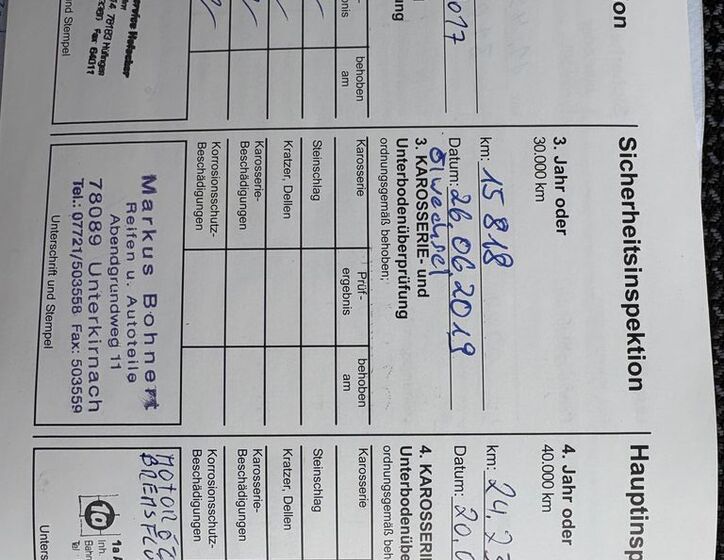 on
017
ung
nis
behoben
am
und Stempel
Sicherheitsinspektion
3. Jahr oder
30.000 km
km: 15 818
Datum: 26.06.2019
Ölwechsel
3. KAROSSERIE- und
Unterbodenüberprüfung
ordnungsgemäß behoben;
Karosserie
Prüf-
ergebnis
behoben
am
Steinschlag
Kratzer, Dellen
Karosserie-
Beschädigungen
Korrosionsschutz-
Beschädigungen
Markus Bohnert
Reifen u. Autoteile
Abendgrundweg 11
78089 Unterkirnach
Tel.: 07721/503558 Fax: 503559
Unterschrift und Stempel
Hauptinsp
4. Jahr oder
40.000 km
km: 24,2
Datum: 20.
4. KAROSSERI
Unterbodenübe
ordnungsgemäß beh
Karosserie
Steinschlag
Kratzer, Dellen
Karosserie-
Beschädigungen
Korrosionsschutz-
Beschädigungen
MOTORÖL
BREMSFLÜ
1a
Inh.
Bahn
Tel
Unters